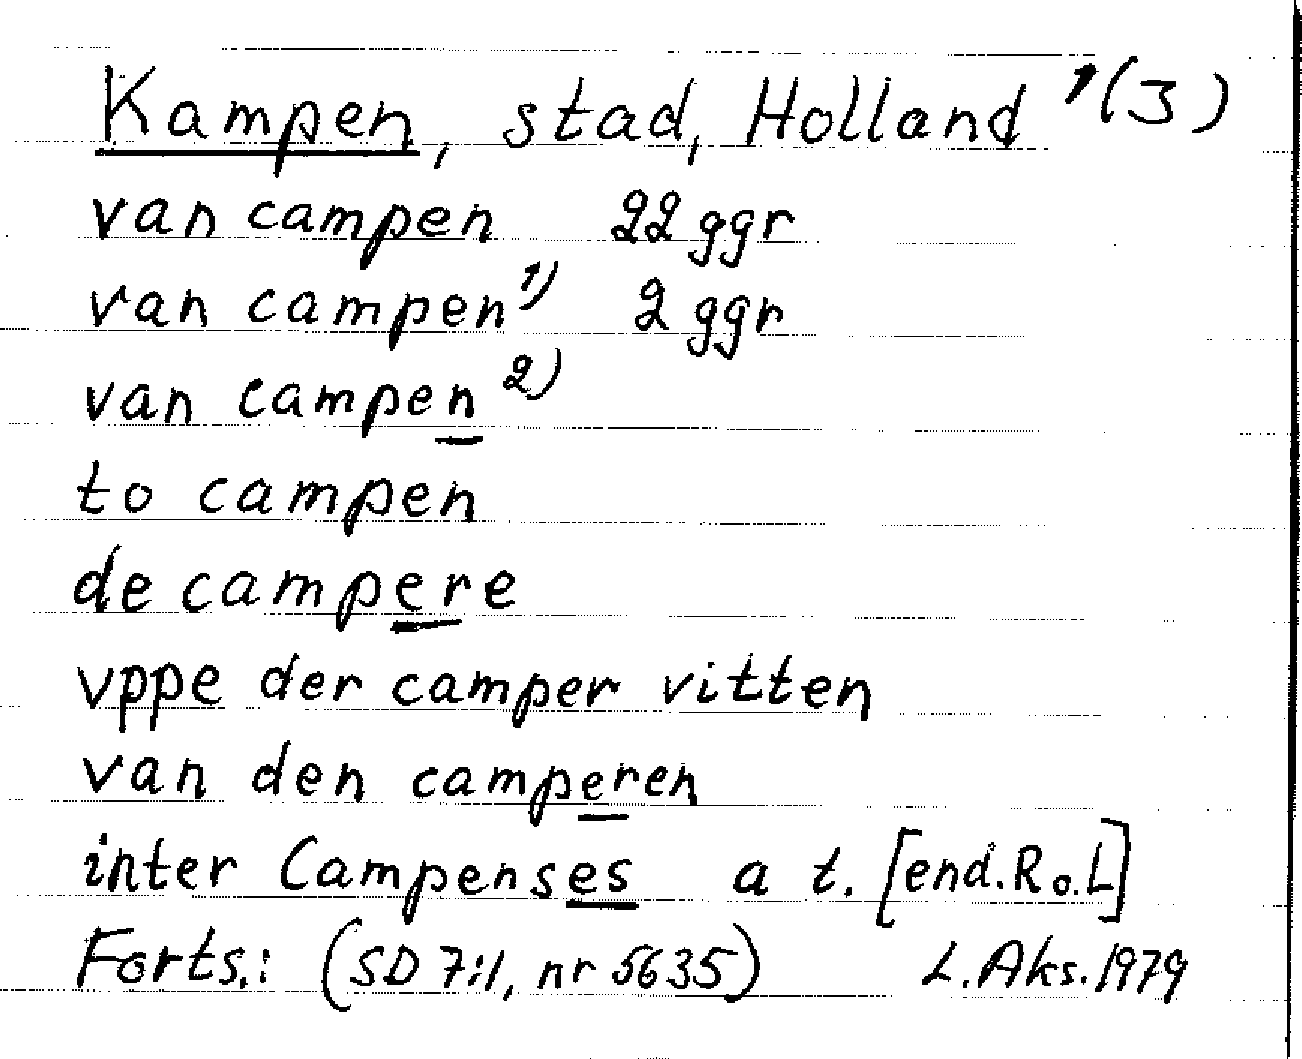 Kampen, stad, Holland 1(3)
van campen 22 ggr
van campen 1) 2 ggr
van campen 2)
to campen
de campere
vppe der camper vitten
van den camperen
inter Campenses a t. [end. R o. L]
Forts.: (SD 7:1, nr 5635) L. Aks. 1979